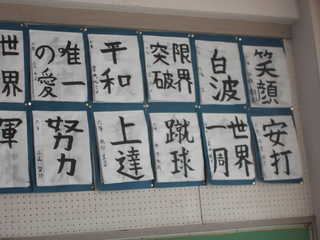 笑顔
白波
限界
突破
平和
唯一
の愛
世界
安打
世界
一周
蹴球
上達
努力